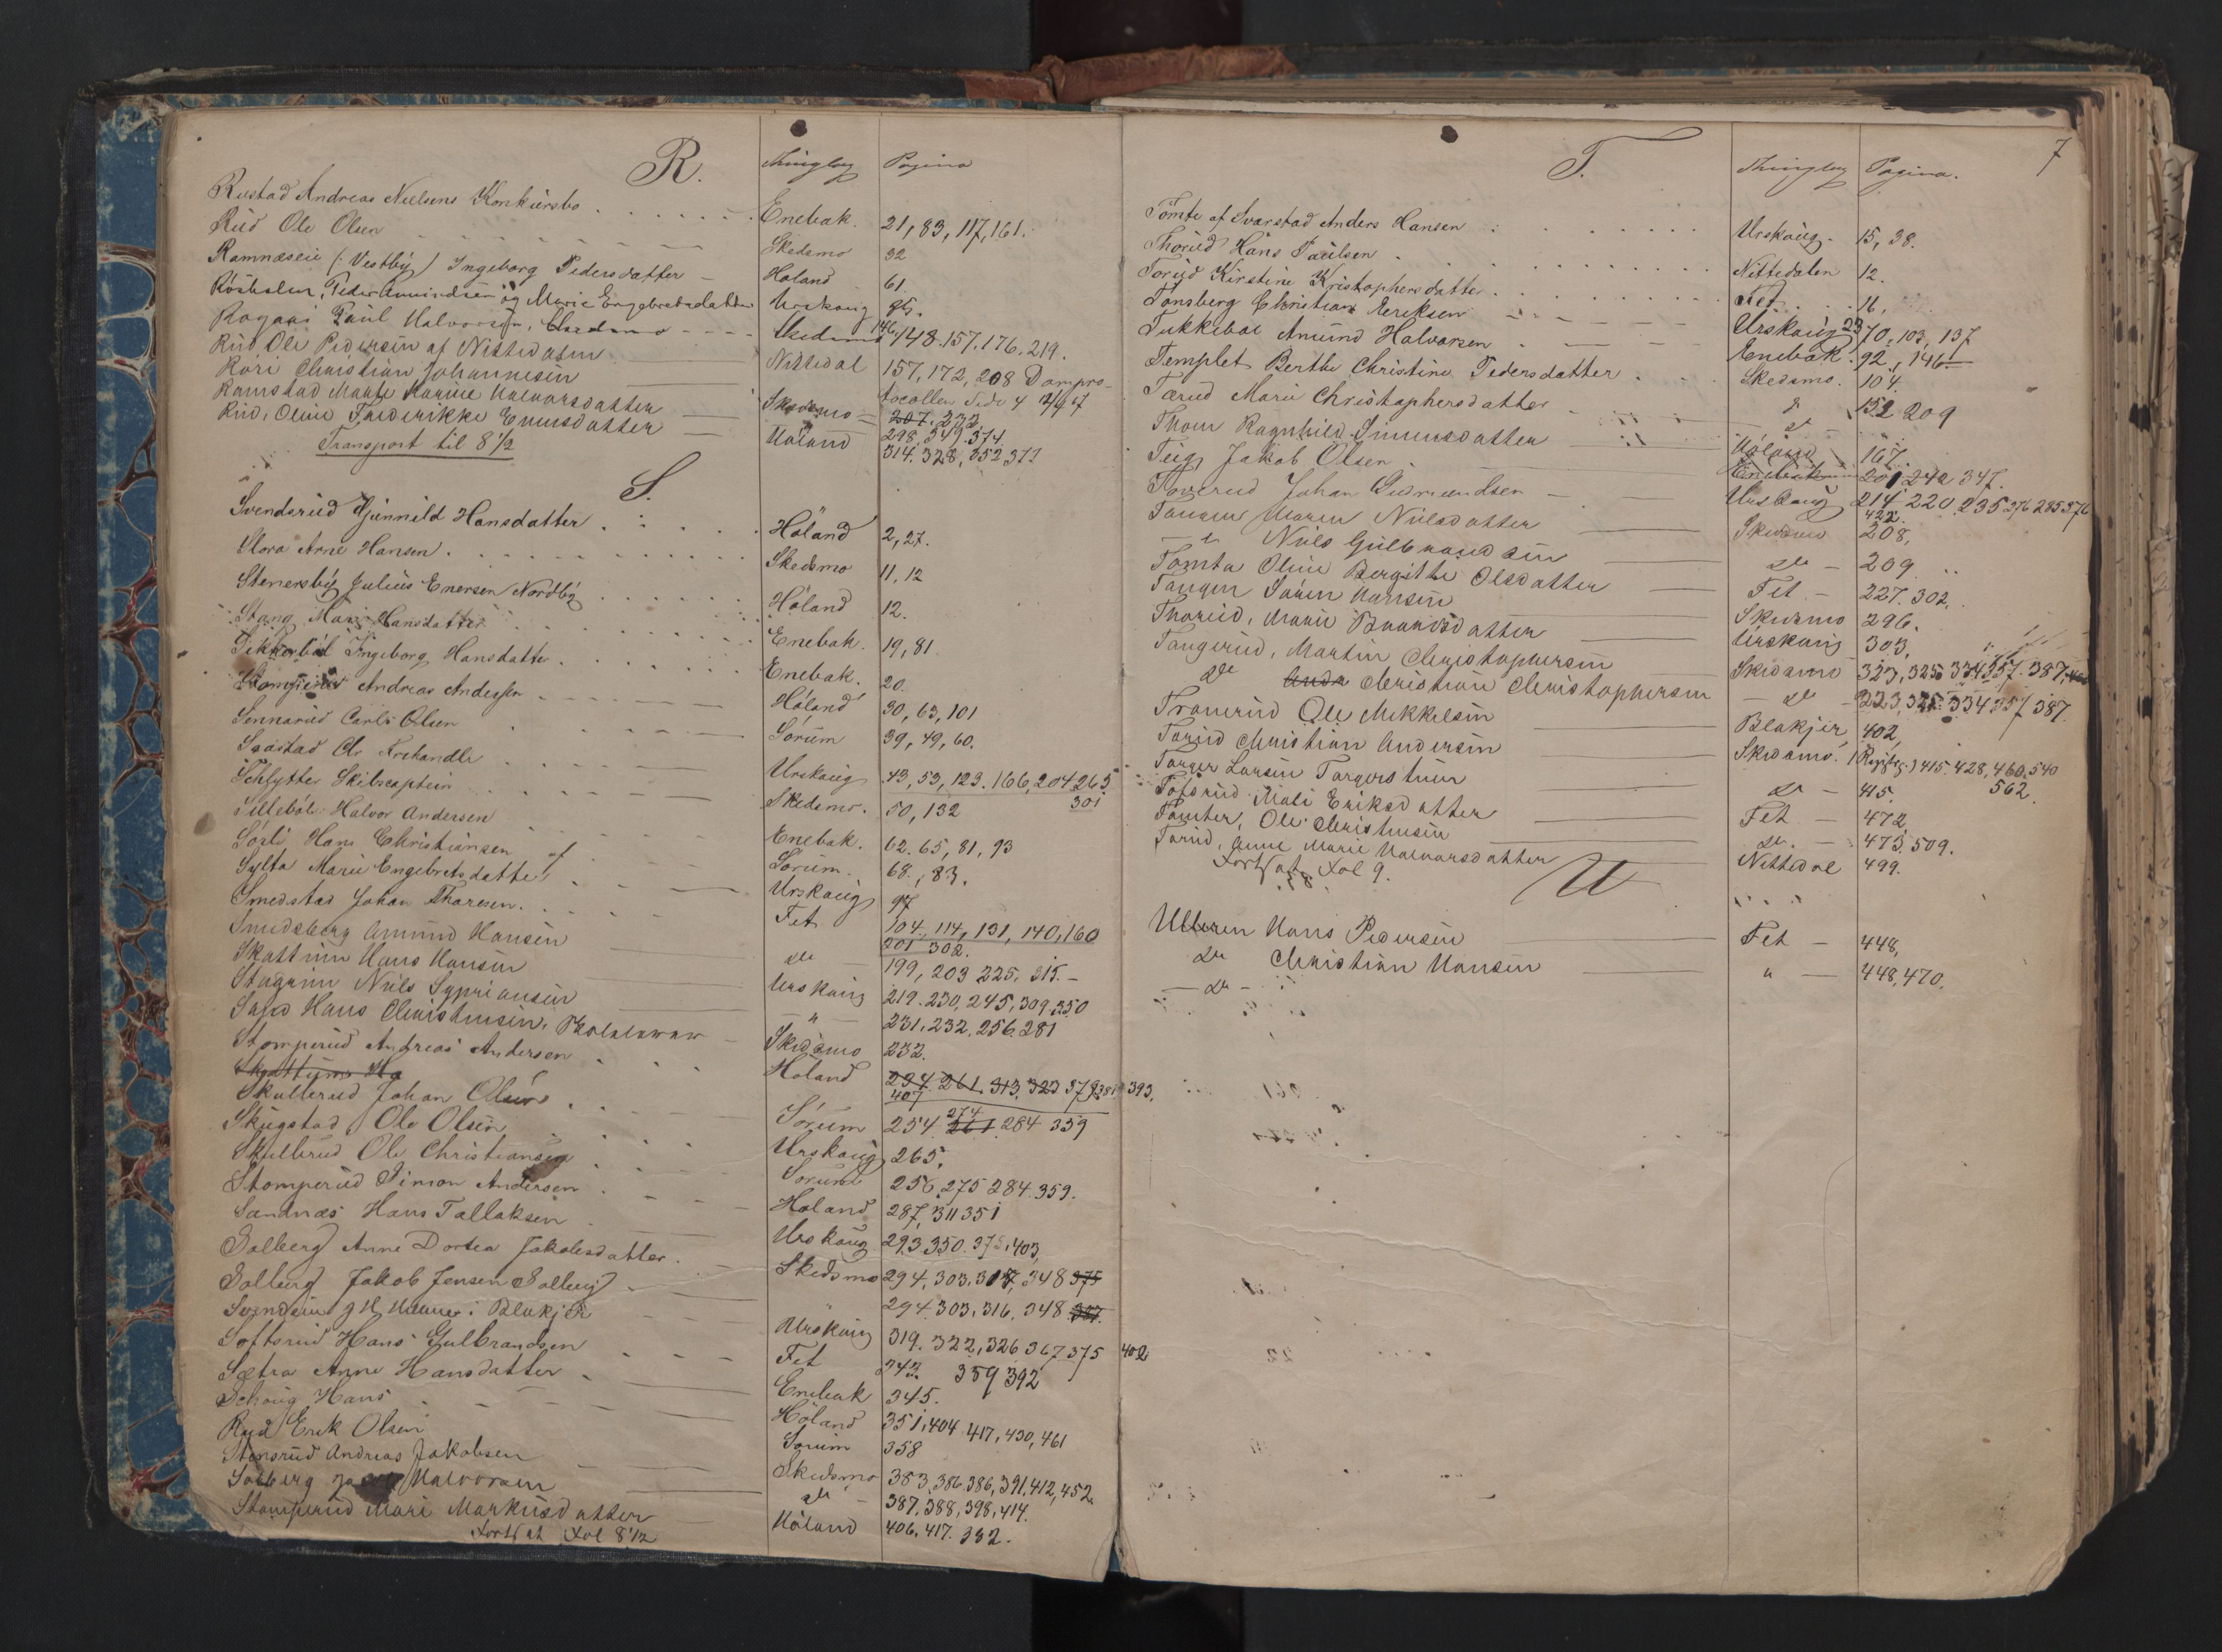 R. Thinglag Pagina
Rustad Andreas Nielsens Konkursbo Enebak. 21, 83, 117, 161.
Rud Ole Olsen Skedsmo 32
Ramnæseie (: Vestby) Ingeborg Pedersdatter Höland 61.
Peder Amundsen og Marie Engebretsdatter Urskoug 95.
Paul Halvorsen, Skedsmo 146, 148. 157. 176. 219.
Rud Ole Pedersen af Nittedalen Nittedal 157, 172, 208 Dompro-
Christian Johannesen tocollen Side 4
Ramstad Marthe Karine Halvorsdatter Skedsmo 207. 232
Rud, Oline Frederikke Evensdatter Höland 298, 349. 374
Transport til 8 1/2 314. 328, 352 371
S.
Svendsrud Gunnild Hansdatter Höland 2, 27.
Slora Arne Hansen Skedsmo 11, 12
Stenersby Julius Enersen Nordby Höland 12.
Stang Mari Hansdatter Enebak. 19, 81
Ingeborg Hansdatter Enebak. 20.
Andreas Andersen Höland 30, 63, 101
Sennerud Carl Olsen Sörum 39, 49, 60.
Handler Urskoug 43, 53, 123. 166, 204 265
301
Schlytter Skibscaptein Skedsmo. 50, 132
Lilleböl Halvor Andersen Enebak. 62. 65, 81, 93
Hans Christiansen Sörum. 68., 83.
Sylta Marie Engebretsdatter Urskoug 97
Smedstad Johan Thoresen. Fet 104, 114, 131, 140, 160
301 302.
Smedsberg Amund Hansen do 199, 203 225. 315.
Skattum Hans Hansen Urskoug 219. 230, 245, 309, 350
Niels Sypriansen " 231, 232, 256. 281
Hans Christensen, Skedsmo 232.
Stomperud Andreas Andersen Höland 234. 261. 313. 323 379, 381, 393.
407
Skattum Ha
Skullerud Johan Olsen Sörum 254 274 261 284 359
Skugstad Ole Olsen Urskoug 265.
Skullerud Ole Christiansen Sörum 256, 275 284. 359.
Stomperud Simon Andersen Höland 287, 311 351
Sandnæs Hans Tallaksen Urskoug 293. 350. 375, 403,
Solberg Anne Dortea Jakobsdatter Skedsmo 294, 303, 317, 348 375
Solberg Jakob Jensen Solberg " 294. 303, 316, 348
Svendsen i Blakjer Urskoug 319. 322, 326 367 375 402
Softsrud Hans Gulbrandsen Fet 342. 359 392
Sætra Anne Hansdatter Enebak 345.
Schoug Hans Höland 351, 404 417, 430, 461
Rud Erik Olsen Sörum 358
Stensrud Andreas Jakobsen Skedsmo 383, 386. 386, 391, 412, 452
Solberg Halvorsen do 387, 388, 398, 414.
Stomperud Mari Markusdatter Höland 406, 417. 382.
Forts. at Fol 8 1/2
7
T. Thinglag Pagina.
Tomte af Svarstad Anders Hansen Urskoug. 15, 38.
Thorud Hans Paulsen Nittedalen 12.
Torud Kirstine Kristophersdatter Fet. 16,
Tonsberg Christian Eriksen Urskoug 23 70, 103, 137
Tukkeböl Amund Halvorsen Enebak. 92, 146
Templet Berthe Christine Pedersdatter Skedsmo. 104.
Tærud Marie Christophersdatter do 152 209
Thom Ragnhild Simensdatter Höland 167.
Teig, Jakob Olsen Enebak 201 240 347.
Toverud Johan Gudmundsen Urskoug 214 220 235 276 285 376
422.
Tangen Maren Nielsdatter Skedsmo 208,
— do Niels Gulbrandsen do — 209
Tomta Oline Bergitte Olsdatter Fet — 227. 302.
Tangen Sören Hansen Skedsmo 296.
Thorud, Marie Brandsdatter Urskoug 303,
Tangerud, Martin Christophersen Skedsmo 323, 325 334 357. 387,
do Andr Christian Christophersen — do 323, 325. 334 357 387.
Tronerud Ole Mikkelsen Blakjer 402,
Torud Christian Andersen Skedsmo. 415. 428, 460. 540
562.
Torger Larsen Torgerstuen do — 415.
Tofsrud Mali Eriksdatter Fet — 472
Tomter, Ole Christensen do. — 473, 509.
Torud, Anne Marie Halvorsdatter Nittedal 499.
Forts. at Fol 9.
U
Ulleren Hans Pedersen Fet — 448,
do Christian Hansen " — 448, 470.
— do —